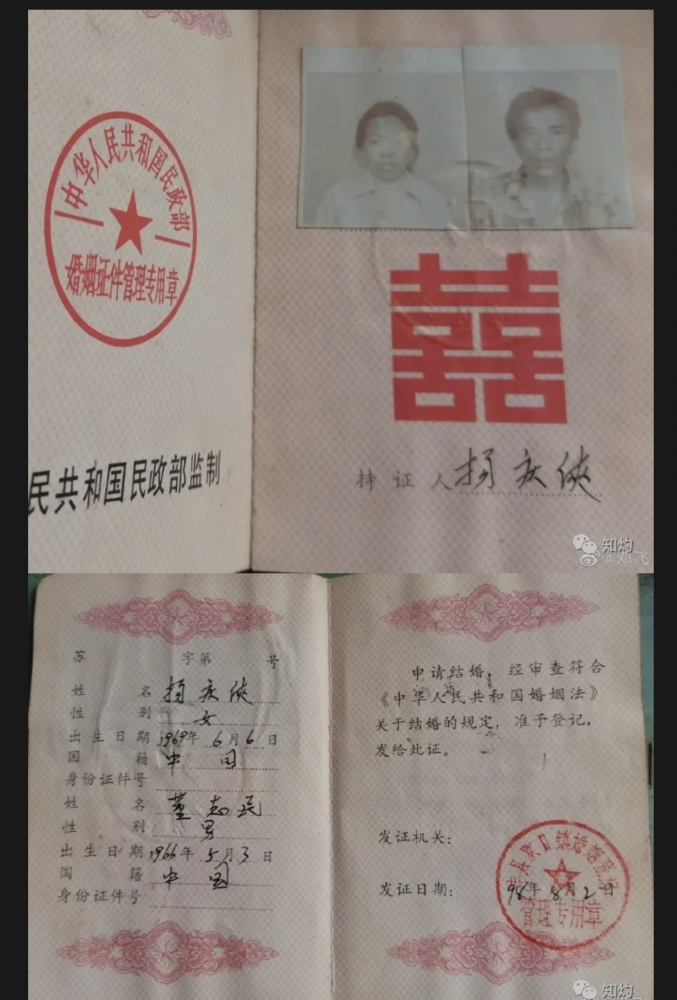 中华人民共和国民政部
婚姻证件管理专用章
民共和国民政部监制
囍
持证人 杨庆侠
知灼
@邓飞
苏 字第 号
姓名 杨庆侠
性别 女
出生日期 1969年6月6日
国籍 中国
身份证件号
姓名 董志民
性别 男
出生日期 1966年5月3日
国籍 中国
身份证件号
申请结婚，经审查符合
《中华人民共和国婚姻法》
关于结婚的规定，准予登记，
发给此证。
发证机关：
发证日期： 98年8月2日
管理专用章
知灼